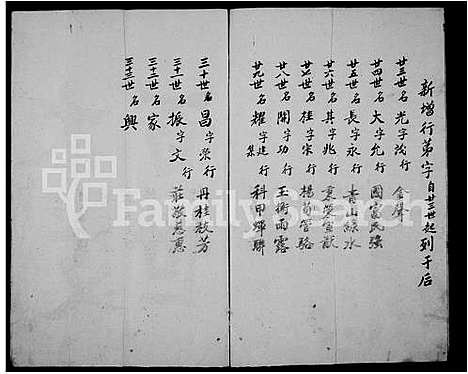 新增行第字自廿三世起列于后
廿三世名光字茂行 金聲
廿四世名大字允行 國富民強
廿五世名長字永行 青山綠水
廿六世名其字兆行
廿七世名佳字宗行
廿八世名開字功行 玉衡雨露
廿九世名耀字建行 科甲輝聯
三十世名昌字榮行 丹桂枝芳
三十一世名振字文行
三十二世名家行
三十三世名興
FamilySearch